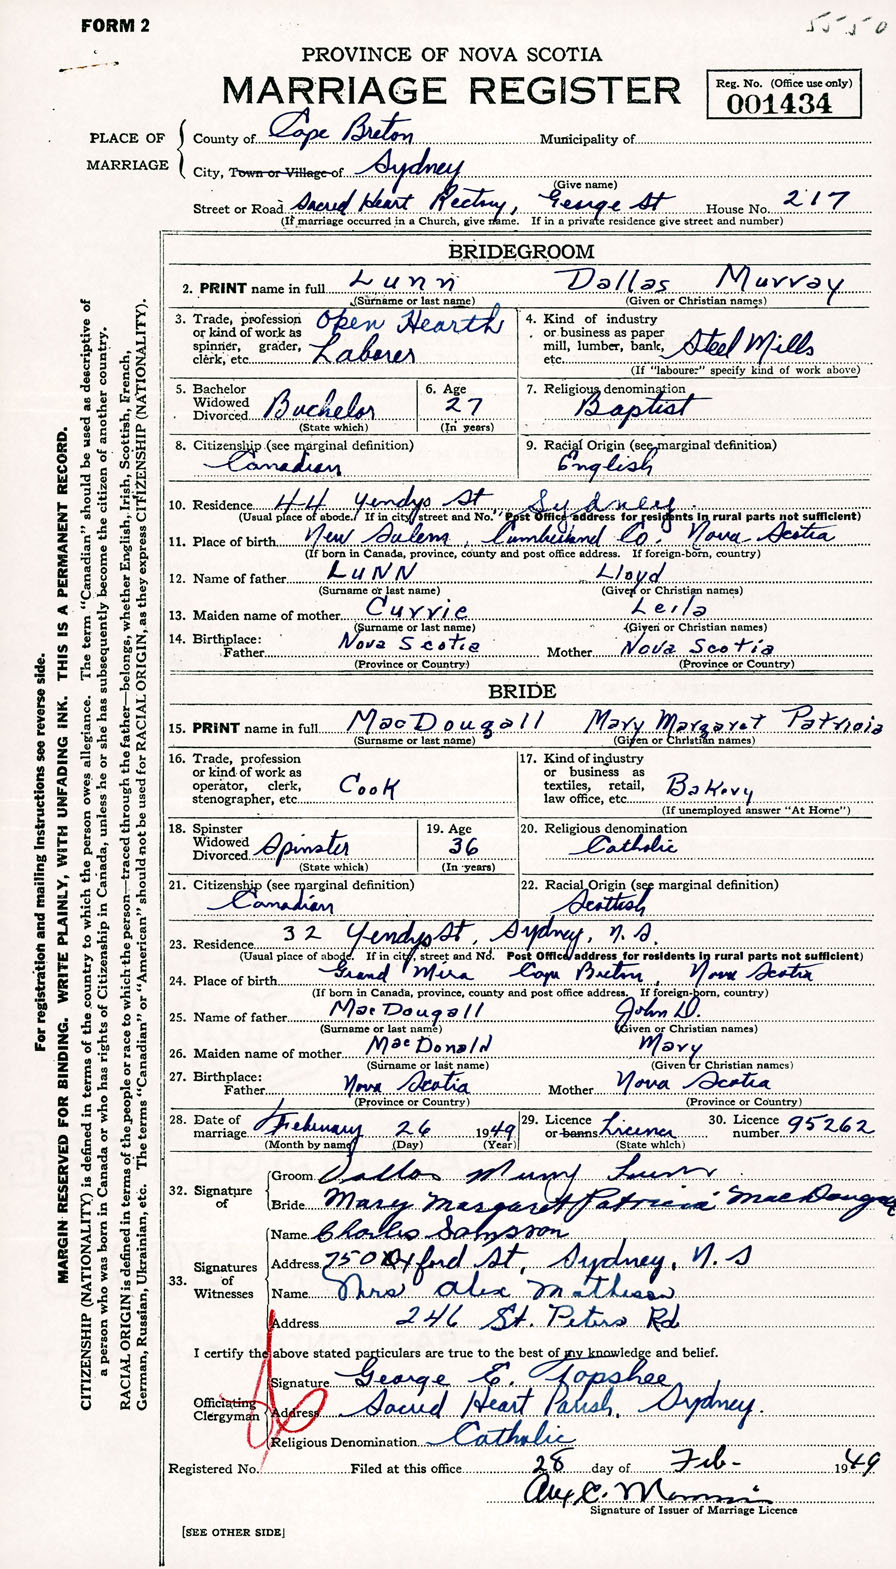 FORM 2
5550
PROVINCE OF NOVA SCOTIA
MARRIAGE REGISTER
Reg. No. (Office use only)
001434
PLACE OF MARRIAGE
County of Cape Breton Municipality of
City, Town or Village of Sydney
(Give name)
Street or Road Sacred Heart Rectory, George St House No. 217
(If marriage occurred in a Church, give name. If in a private residence give street and number)
BRIDEGROOM
2. PRINT name in full Lunn Dallas Murray
(Surname or last name) (Given or Christian names)
3. Trade, profession or kind of work as spinner, grader, clerk, etc. Open Hearth Laborer
4. Kind of industry or business as paper mill, lumber, bank, etc. Steel Mills
(If "labourer" specify kind of work above)
5. Bachelor Widowed Divorced Bachelor
(State which)
6. Age 27
(In years)
7. Religious denomination Baptist
8. Citizenship (see marginal definition) Canadian
9. Racial Origin (see marginal definition) English
10. Residence 44 Yendys St Sydney
(Usual place of abode. If in city, street and No. Post Office address for residents in rural parts not sufficient)
11. Place of birth New Salem, Cumberland Co. Nova Scotia
(If born in Canada, province, county and post office address. If foreign-born, country)
12. Name of father LUNN Lloyd
(Surname or last name) (Given or Christian names)
13. Maiden name of mother Currie Leila
(Surname or last name) (Given or Christian names)
14. Birthplace: Father Nova Scotia Mother Nova Scotia
(Province or Country) (Province or Country)
BRIDE
15. PRINT name in full MacDougall Mary Margaret Patricia
(Surname or last name) (Given or Christian names)
16. Trade, profession or kind of work as operator, clerk, stenographer, etc. Cook
17. Kind of industry or business as textiles, retail, law office, etc. Bakery
(If unemployed answer "At Home")
18. Spinster Widowed Divorced Spinster
(State which)
19. Age 36
(In years)
20. Religious denomination Catholic
21. Citizenship (see marginal definition) Canadian
22. Racial Origin (see marginal definition) Scottish
23. Residence 32 Yendys St, Sydney, N.S.
(Usual place of abode. If in city, street and No. Post Office address for residents in rural parts not sufficient)
24. Place of birth Grand Mira Cape Breton, Nova Scotia
(If born in Canada, province, county and post office address. If foreign-born, country)
25. Name of father MacDougall John D.
(Surname or last name) (Given or Christian names)
26. Maiden name of mother MacDonald Mary
(Surname or last name) (Given or Christian names)
27. Birthplace: Father Nova Scotia Mother Nova Scotia
(Province or Country) (Province or Country)
28. Date of marriage February 26 1949
(Month by name) (Day) (Year)
29. Licence or banns Licence
(State which)
30. Licence number 95262
32. Signature of
Groom Dallas Murray Lunn
Bride Mary Margaret Patricia MacDougall
33. Signatures of Witnesses
Name Charles Sampson
Address 750 Oxford St, Sydney, N.S
Name Mrs Alex Matheson
Address 246 St. Peters Rd
I certify the above stated particulars are true to the best of my knowledge and belief.
Officiating Clergyman
Signature George E. Topshee
Address Sacred Heart Parish, Sydney.
Religious Denomination Catholic
Registered No. Filed at this office 28 day of Feb- 1949
Signature of Issuer of Marriage Licence
[SEE OTHER SIDE]
For registration and mailing instructions see reverse side.
MARGIN RESERVED FOR BINDING. WRITE PLAINLY, WITH UNFADING INK. THIS IS A PERMANENT RECORD.
CITIZENSHIP (NATIONALITY) is defined in terms of the country to which the person owes allegiance. The term "Canadian" should be used as descriptive of
a person who was born in Canada or who has rights of Citizenship in Canada, unless he or she has subsequently become the citizen of another country.
RACIAL ORIGIN is defined in terms of the people or race to which the person—traced through the father—belongs, whether English, Irish, Scottish, French,
German, Russian, Ukrainian, etc. The terms "Canadian" or "American" should not be used for RACIAL ORIGIN, as they express CITIZENSHIP (NATIONALITY).